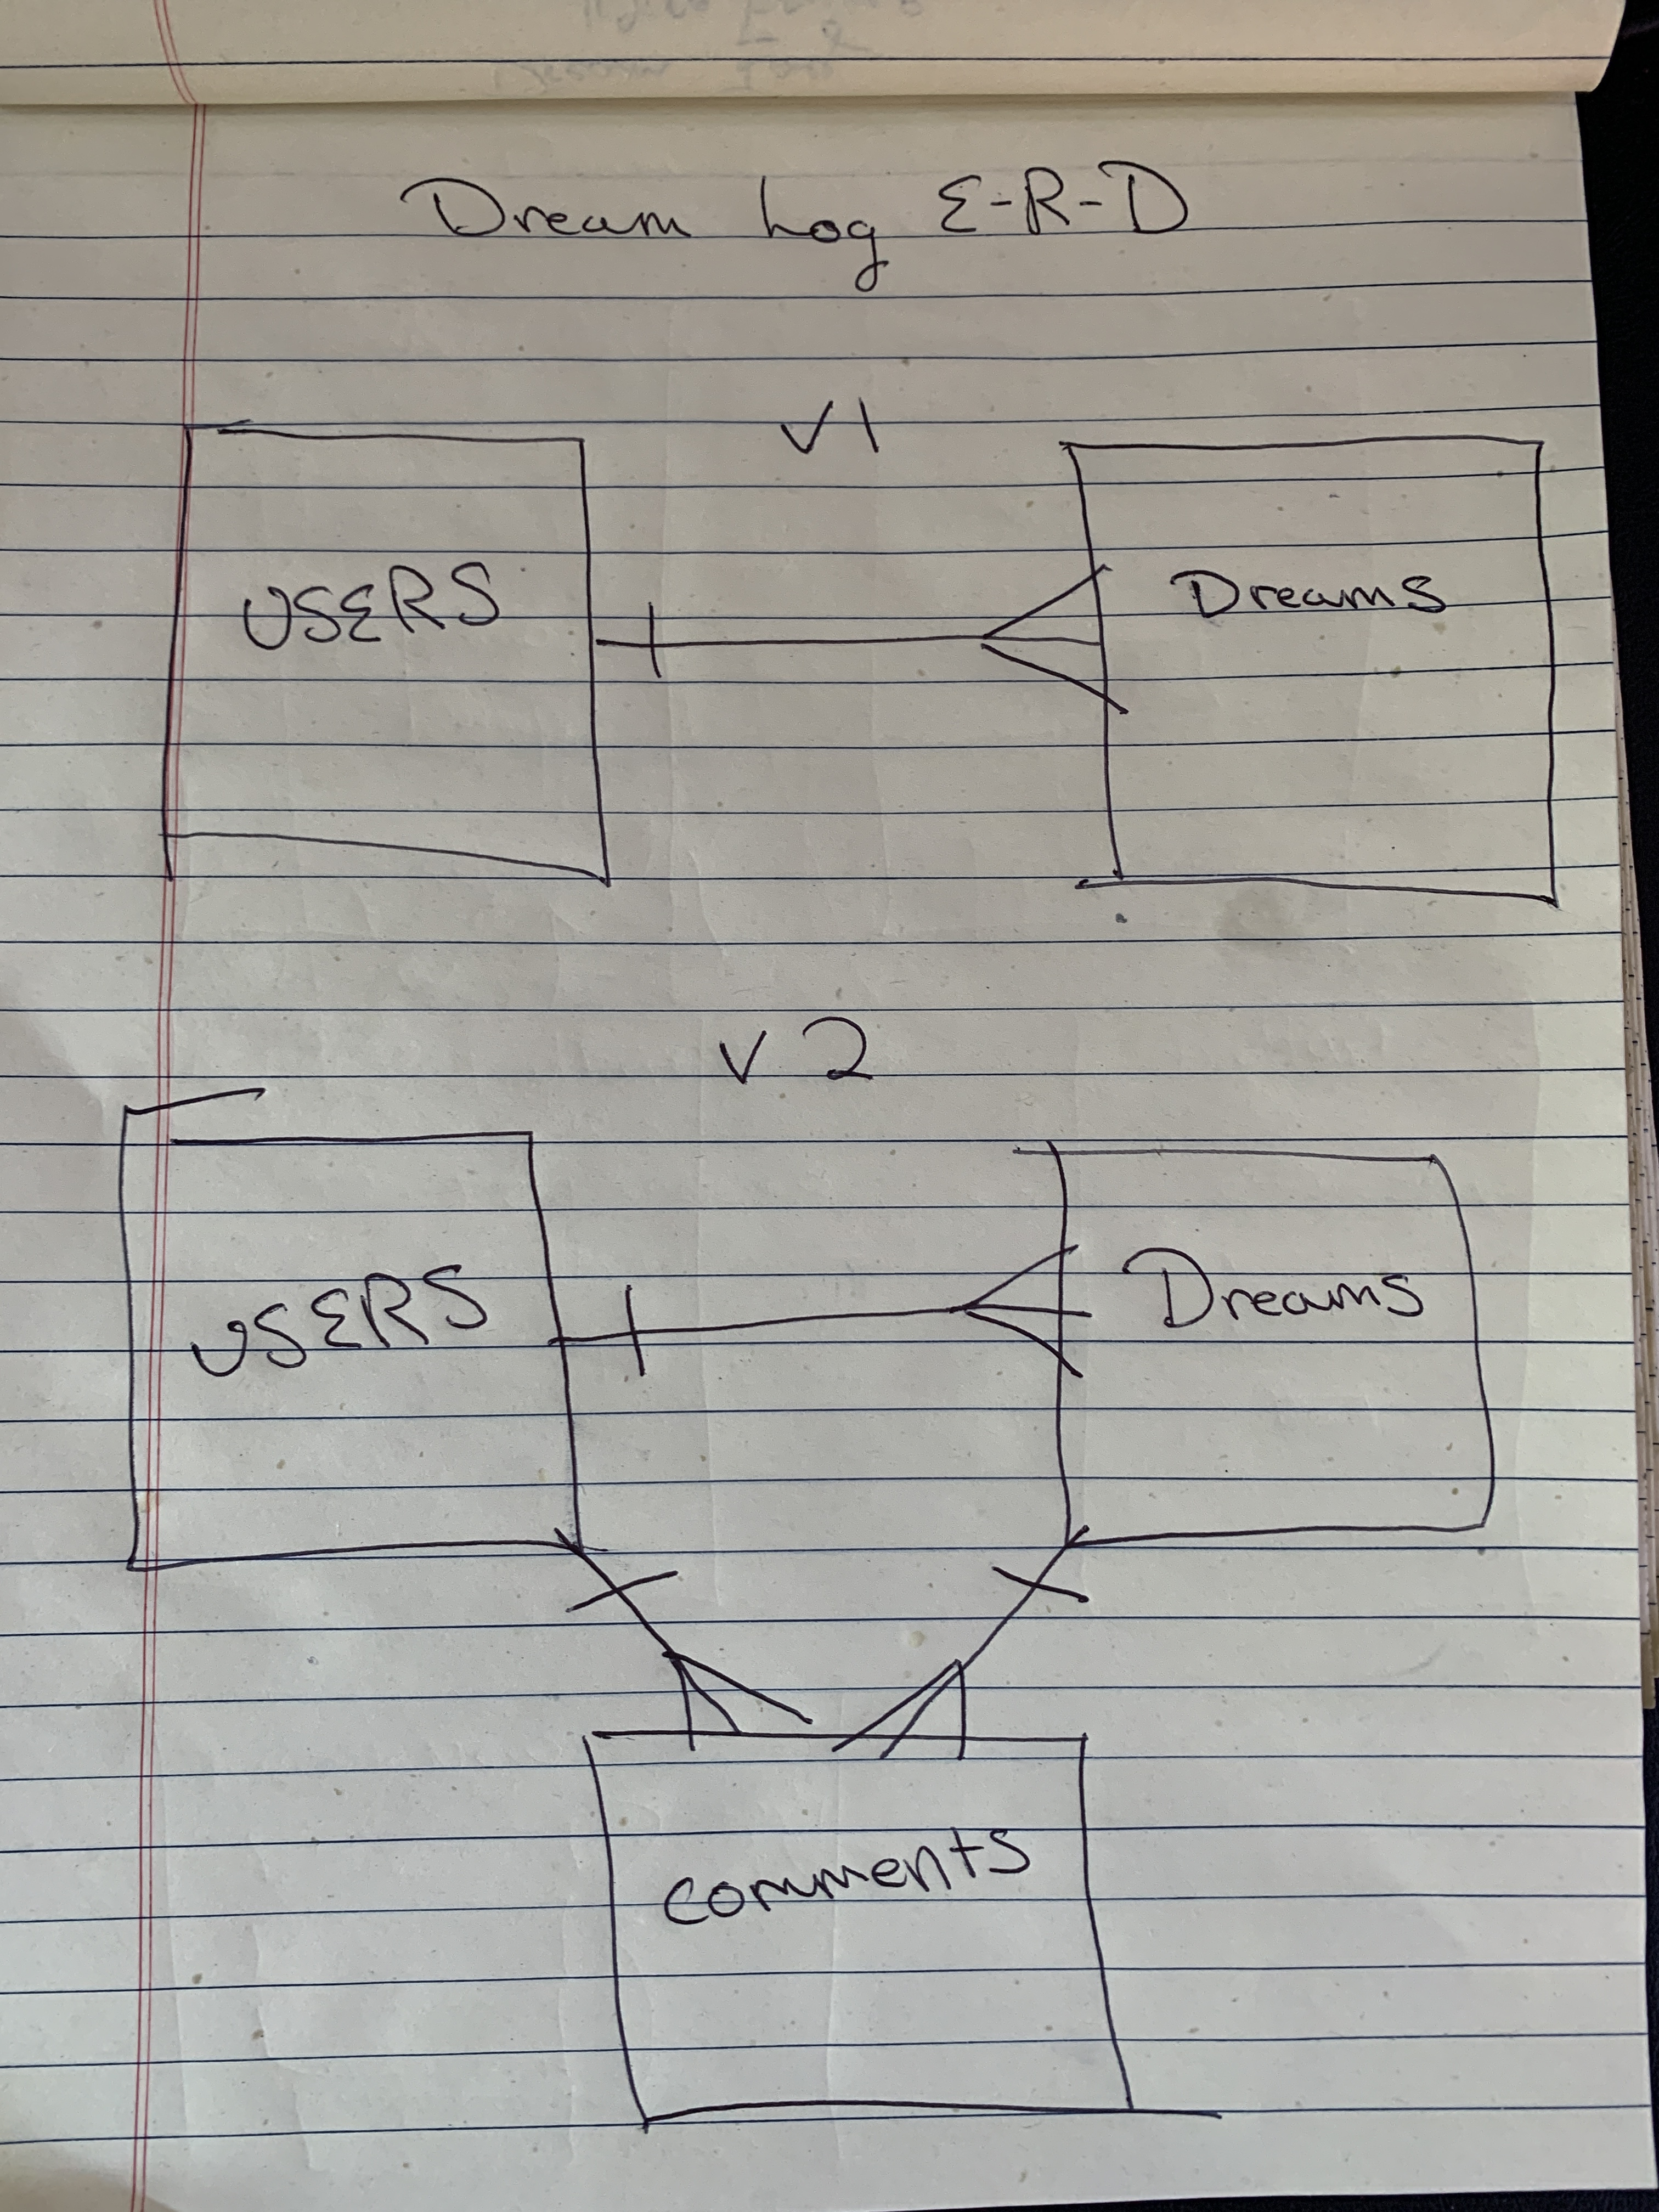 Dream Log E-R-D
v1
USERS
Dreams
v 2
USERS
Dreams
comments